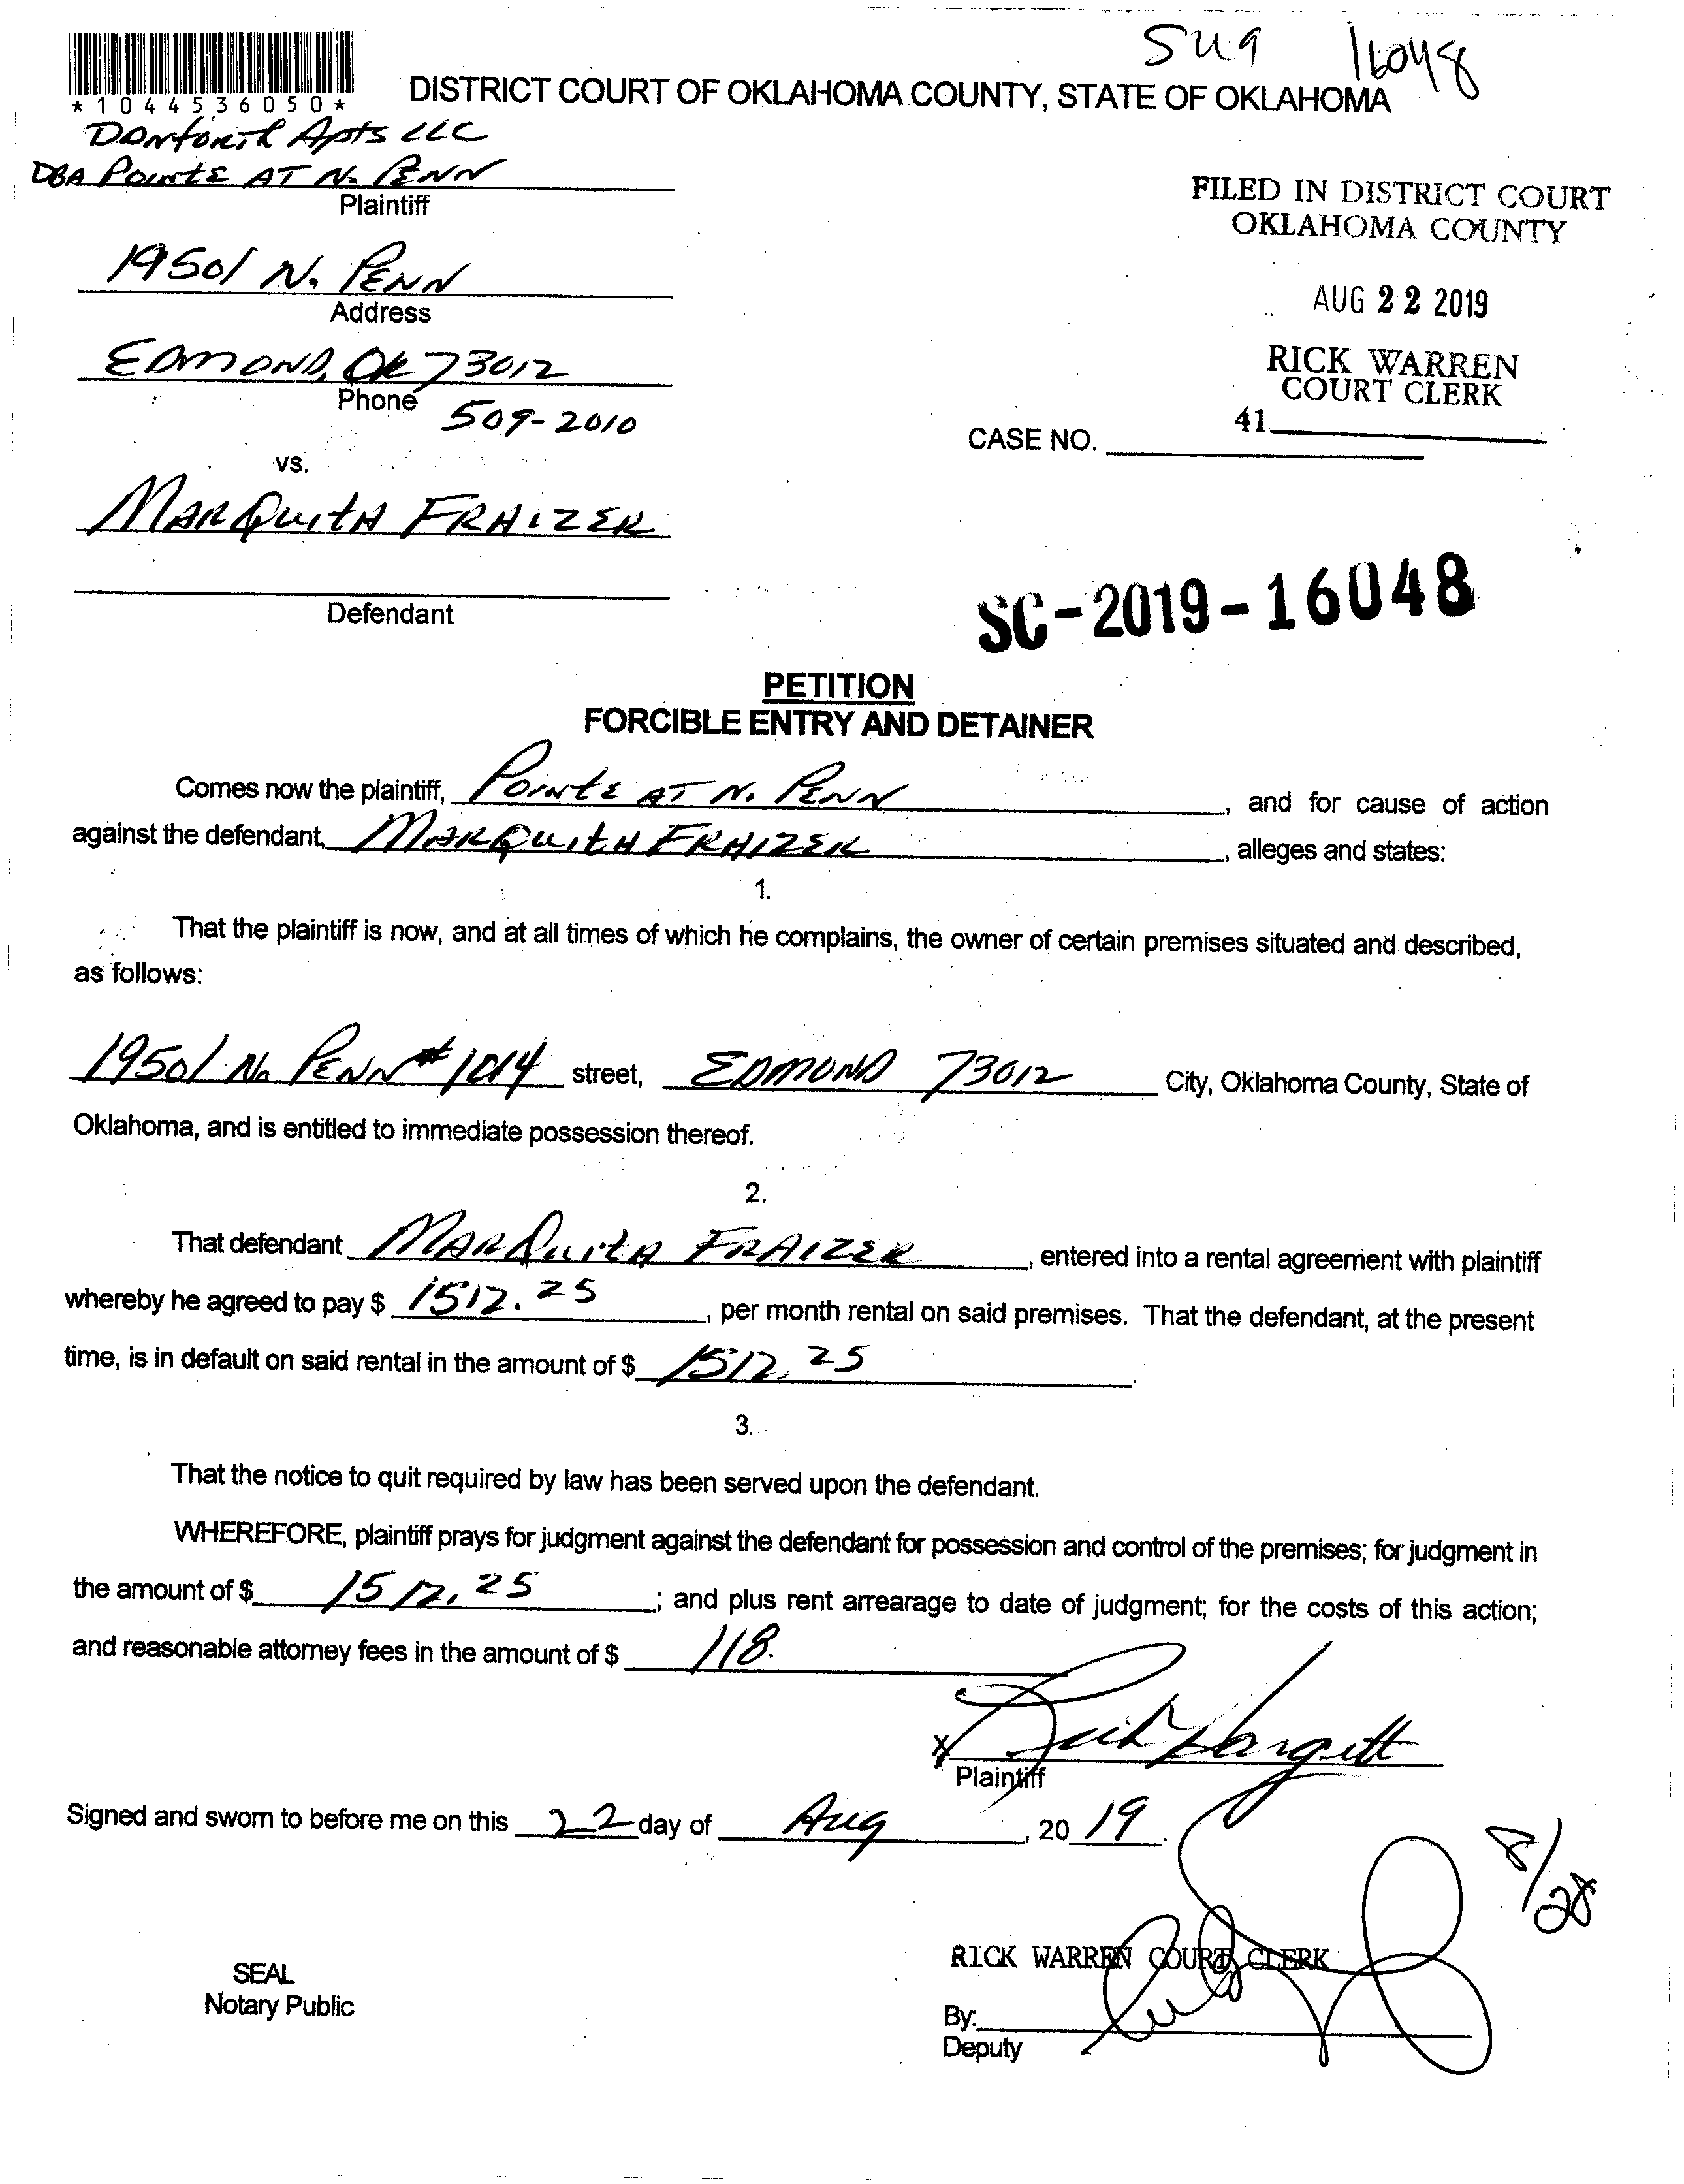 SU9 16048
*1044536050*
DISTRICT COURT OF OKLAHOMA COUNTY, STATE OF OKLAHOMA
DANFORTH Apts LLC
DBA POINTE AT N. PENN
Plaintiff
FILED IN DISTRICT COURT
OKLAHOMA COUNTY
19501 N. PENN
Address
AUG 22 2019
EDMOND, OK 73012
Phone 509-2010
RICK WARREN
COURT CLERK
41
CASE NO.
vs.
MARQUITA FRAIZER
Defendant
SC-2019-16048
PETITION
FORCIBLE ENTRY AND DETAINER
Comes now the plaintiff, POINTE AT N. PENN, and for cause of action
against the defendant, MARQUITA FRAIZER, alleges and states:
1.
That the plaintiff is now, and at all times of which he complains, the owner of certain premises situated and described,
as follows:
19501 N. PENN #1014 street, EDMOND 73012 City, Oklahoma County, State of
Oklahoma, and is entitled to immediate possession thereof.
2.
That defendant MARQUITA FRAIZER, entered into a rental agreement with plaintiff
whereby he agreed to pay $ 1512.25, per month rental on said premises. That the defendant, at the present
time, is in default on said rental in the amount of $ 1512.25.
3.
That the notice to quit required by law has been served upon the defendant.
WHEREFORE, plaintiff prays for judgment against the defendant for possession and control of the premises; for judgment in
the amount of $ 1512.25; and plus rent arrearage to date of judgment; for the costs of this action;
and reasonable attorney fees in the amount of $ 118.
X
Plaintiff
Signed and sworn to before me on this 22 day of Aug, 2019.
8/28
RICK WARREN COURT CLERK
SEAL
Notary Public
By:
Deputy